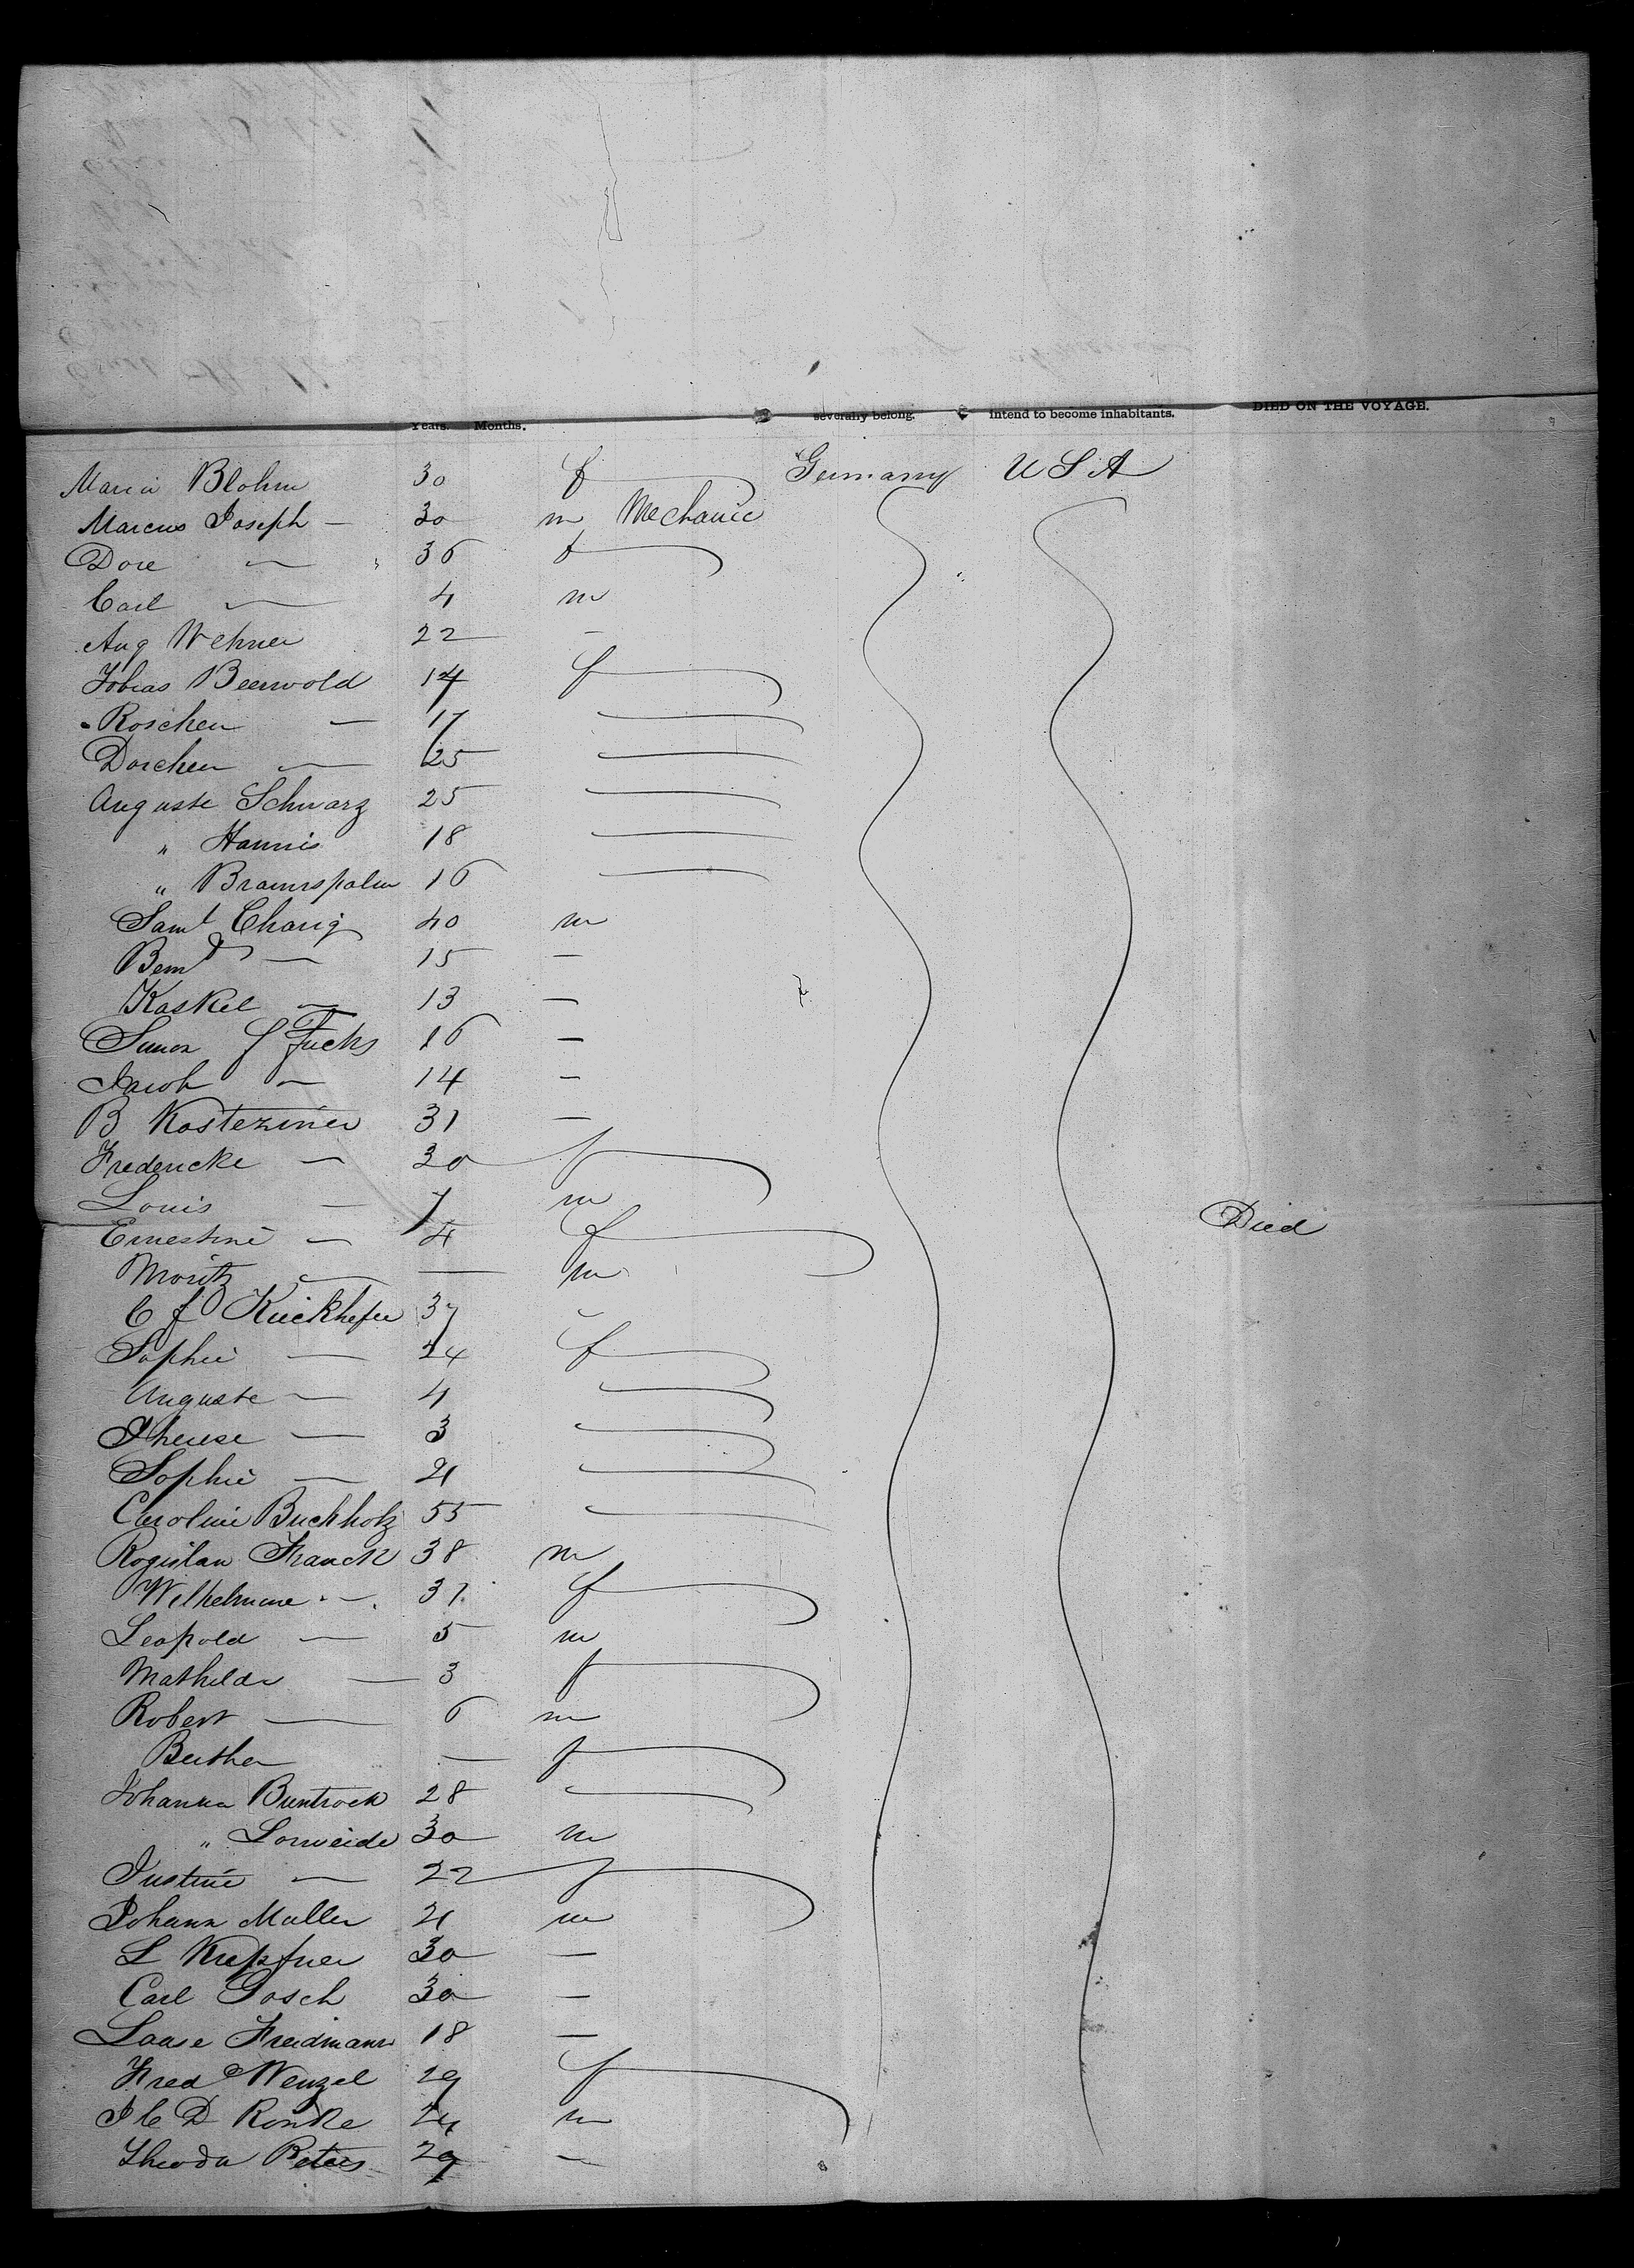 Years. Months. severally belong. intend to become inhabitants. DIED ON THE VOYAGE.
Maria Blohm 30 f Germany U S A
Marcus Joseph — 30 m Mechanic
Dore — 36 f
Carl — 4 m
Aug Wehner 22 —
Tobias Beerwold 14 f
Roschen — 17
Dorchen — 25
Auguste Schwarz 25
" Hannis 18
" 16
Saml Charig 40 m
— 15 —
Kaskel — 13 —
Simon Fuchs 16 —
Jacob — 14 —
B Kosteziner 31 —
Fredericke — 30 f
Louis — 7 m Died
Ernestine — 4 f
Moritz — — m
C f Kuckhefer 37 -
Sophie — 24 f
Auguste — 4
Theuse — 3
Sophie — 21
Caroline Buchholz 55
Franck 38 m
Wilhelmine — 31 f
Leopold — 5 m
Mathilde — 3 f
Robert — 6 m
Bertha — f
Johanna Buntrock 28
" 30 m
Justine — 22 f
Johann Muller 21 m
L 30 —
Carl Gosch 30 —
Louise Freidmann 18 —
Fred Wenzel 29 f
J C D Ronke 24 m
Theodu Peters 29 —